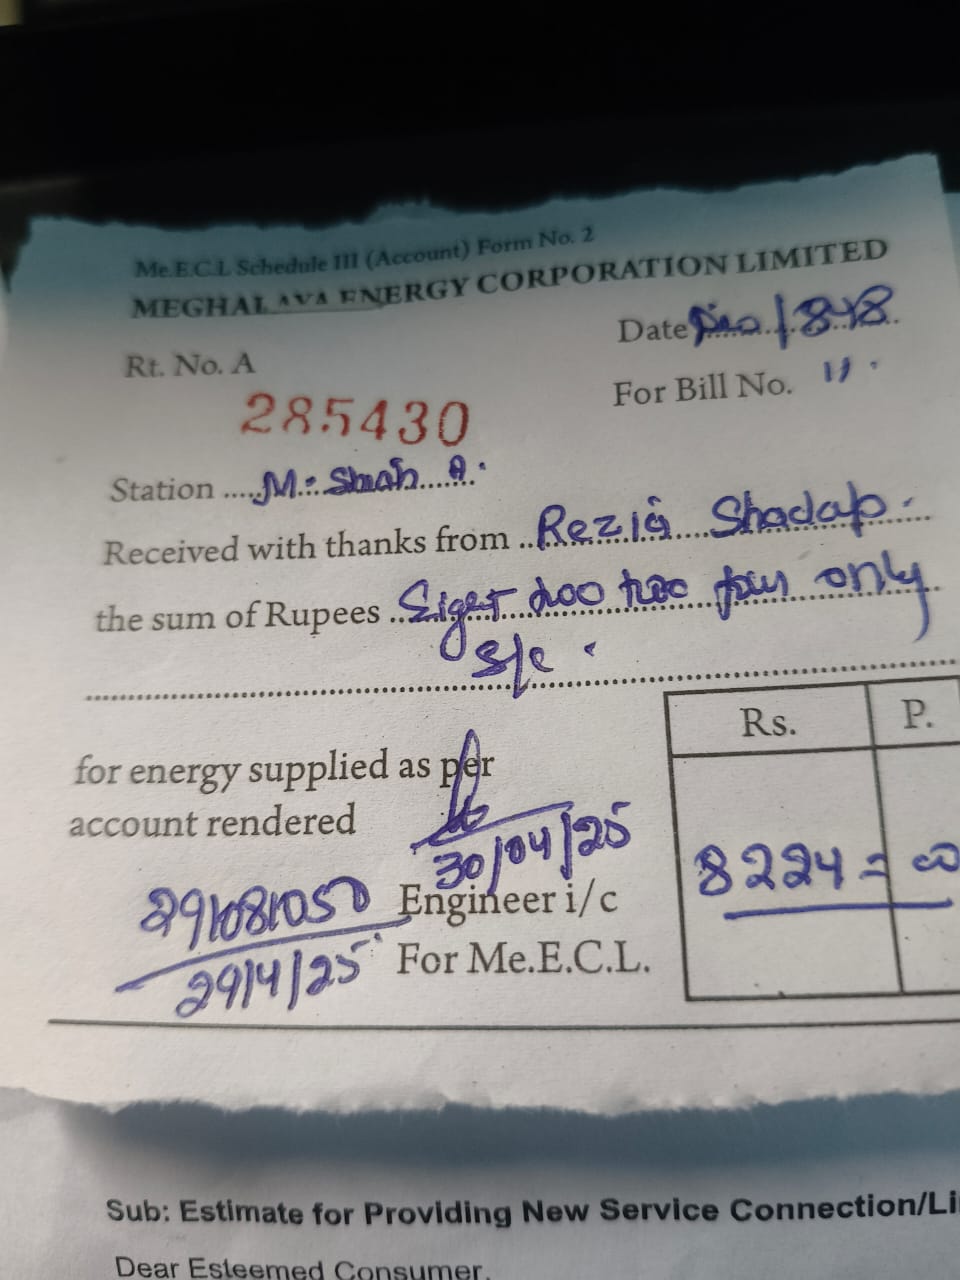 Me.E.C.L Schedule III (Account) Form No. 2
MEGHALAYA ENERGY CORPORATION LIMITED
Rt. No. A
Date /848
285430
For Bill No. 11
Station M. A.
Received with thanks from Rezia Shadap.
the sum of Rupees only
S/c.
Rs. P.
for energy supplied as per
account rendered
30/04/25
8224 =
Engineer i/c
29/4/25 For Me.E.C.L.
Sub: Estimate for Providing New Service Connection/Li
Dear Esteemed Consumer,